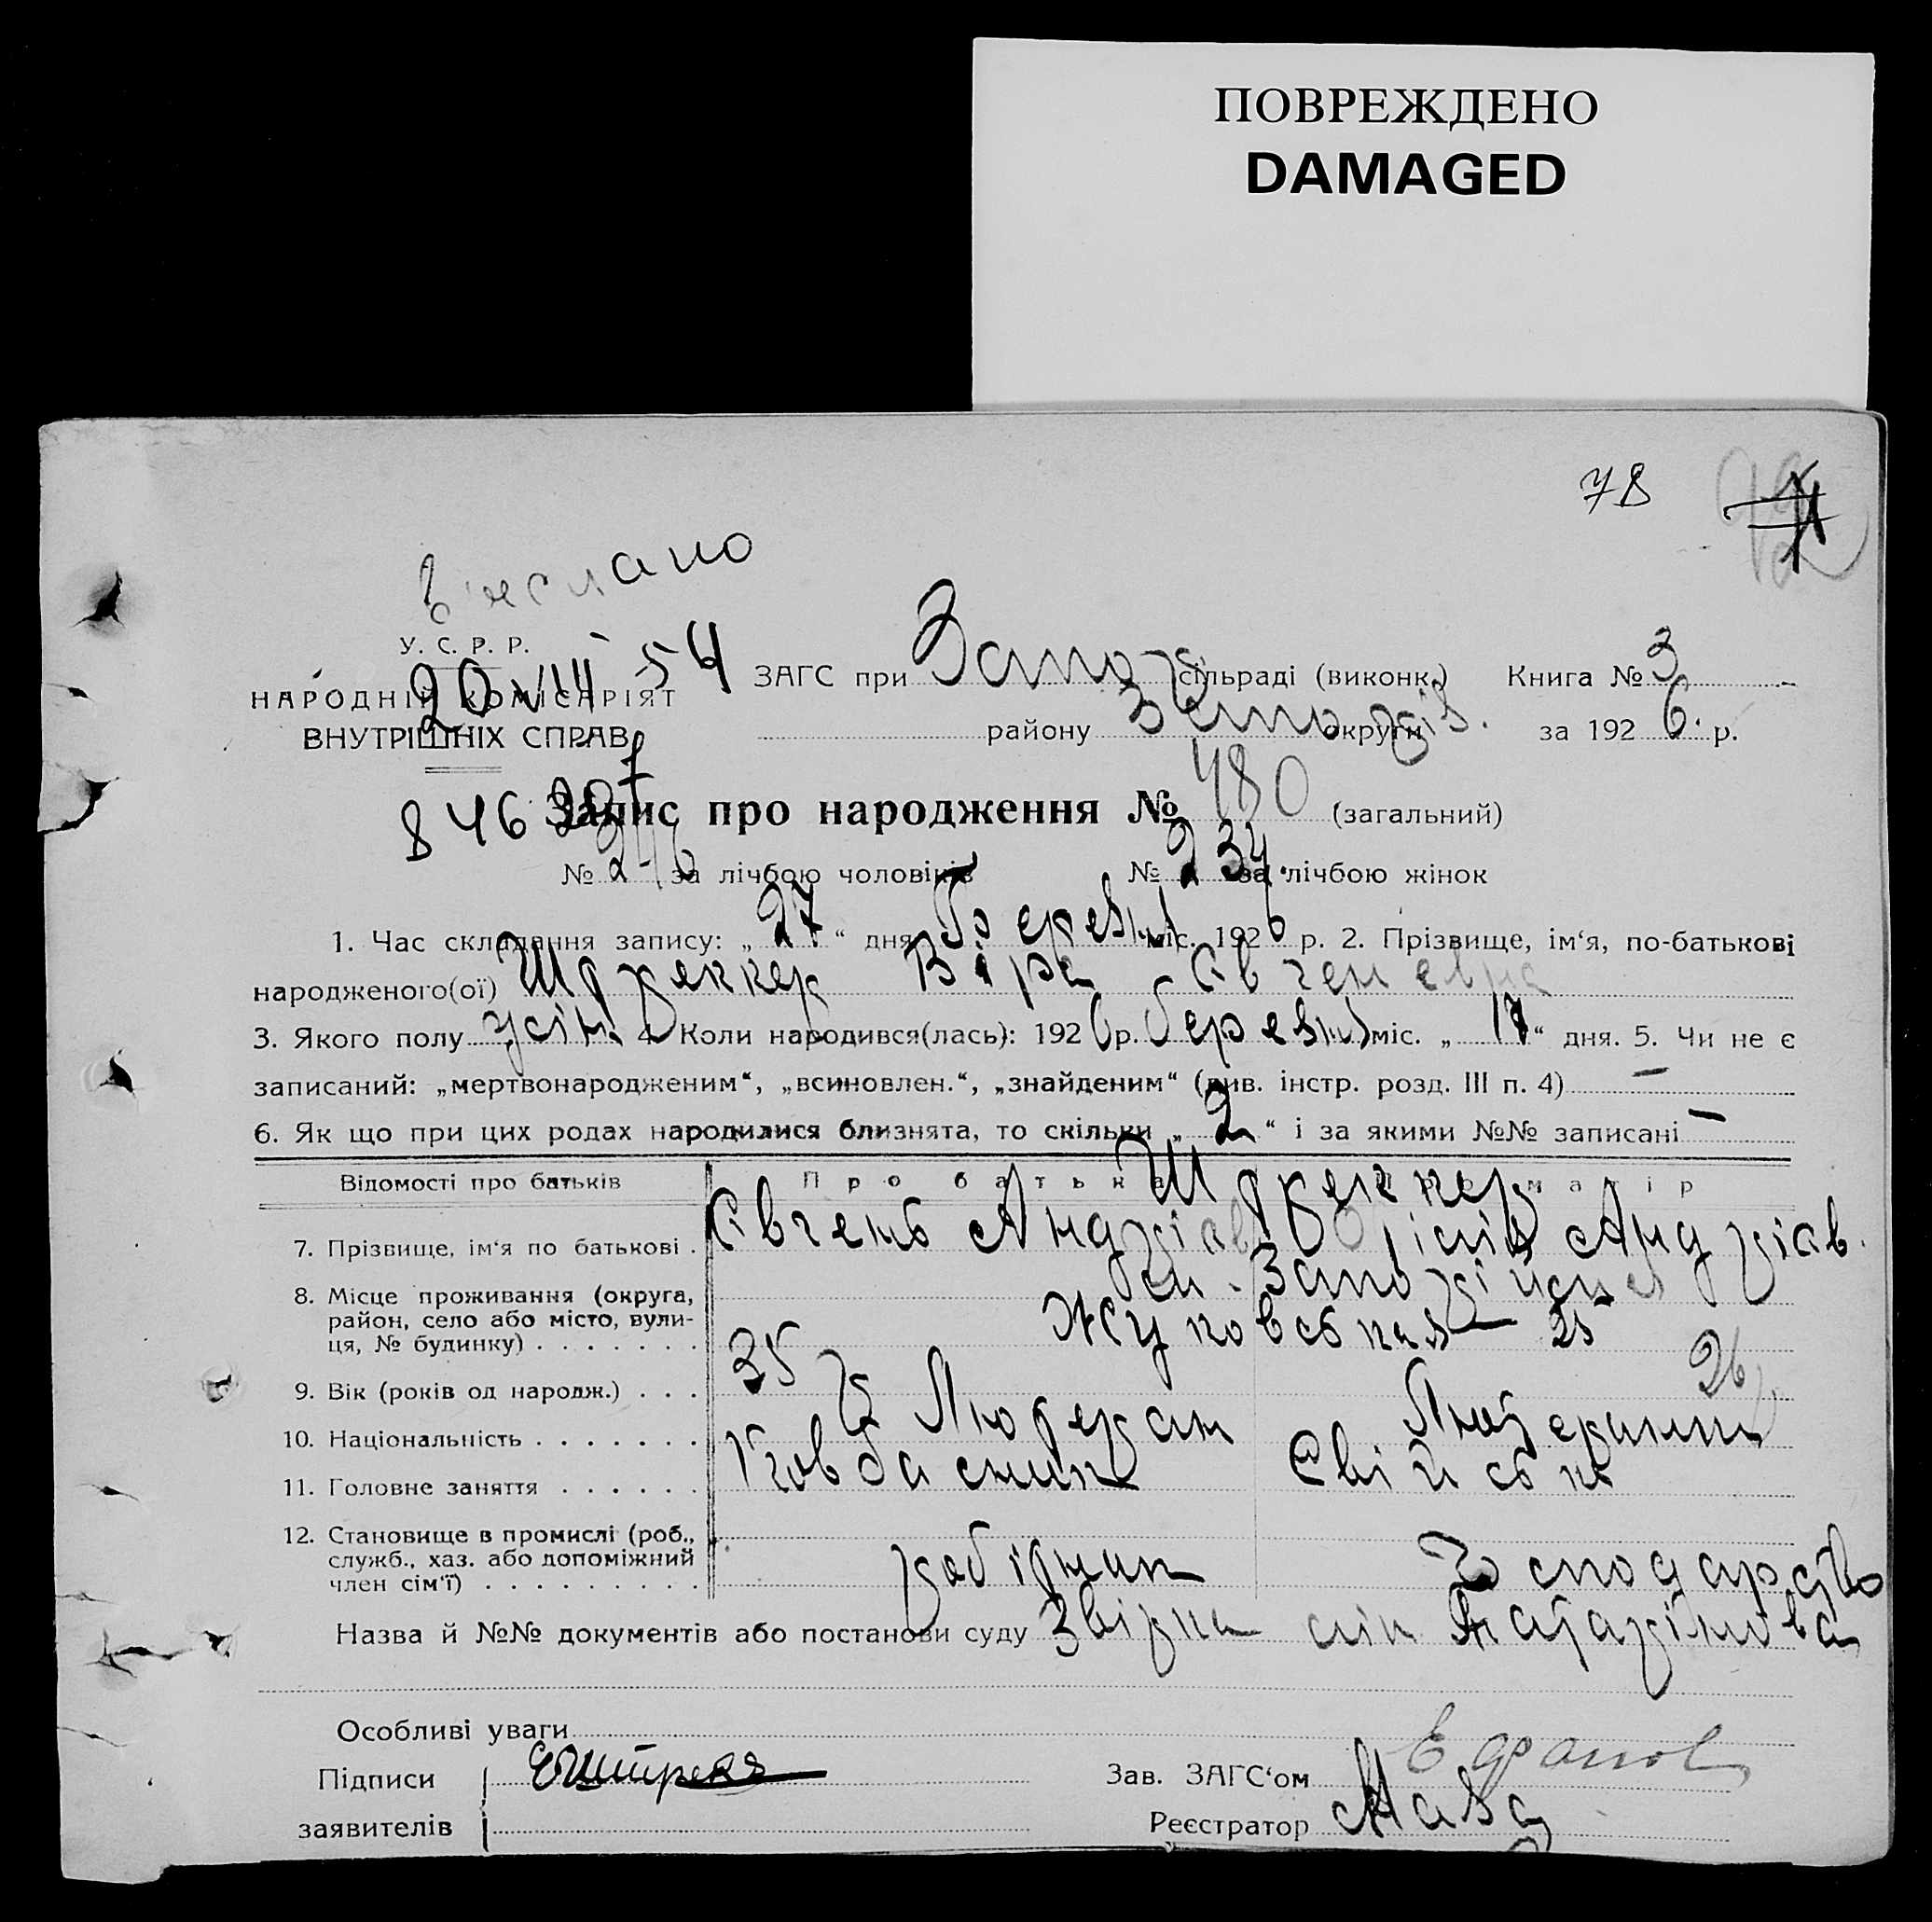 ПОВРЕЖДЕНО
DAMAGED
78
У. С. Р. Р.
НАРОДНІЙ КОМІСАРІЯТ
ВНУТРІШНІХ СПРАВ
20 VIII 54
ЗАГС при Запор сільраді (виконк.) Книга № 3
району Запоріз. округи за 1926 р.
Запис про народження № 480 (загальний)
№ 246 за лічбою чоловіків № 234 за лічбою жінок
1. Час складання запису: „27“ дня Березня міс. 1926 р. 2. Прізвище, ім‘я, по-батькові
народженого(ої) Штреккер Віра Євгеневна
3. Якого полу жін. 4. Коли народився(лась): 1926 р. березня міс. „17“ дня. 5. Чи не є
записаний: „мертвонародженим“, „всиновлен.“, „знайденим“ (див. інстр. розд. III п. 4) —
6. Як що при цих родах народилися близнята, то скільки „2“ і за якими №№ записані —
Відомості про батьків Про батька Про матір
Штреккер
7. Прізвище, ім‘я по батькові . Євгень Андріав Андріав.
8. Місце проживання (округа,
район, село або місто, вули-
ця, № будинку) . . . . . . . Жуковська — 25
9. Вік (років од народж.) . . . 35 26
10. Національність . . . . . . . Лютеран
11. Головне заняття . . . . . . Ковбасник
12. Становище в промислі (роб.,
служб., хаз. або допоміжний
член сім‘ї) . . . . . . . . . робітник Господарство
Назва й №№ документів або постанови суду Звірка
Особливі уваги
Підписи
заявителів
Зав. ЗАГС‘ом
Реєстратор